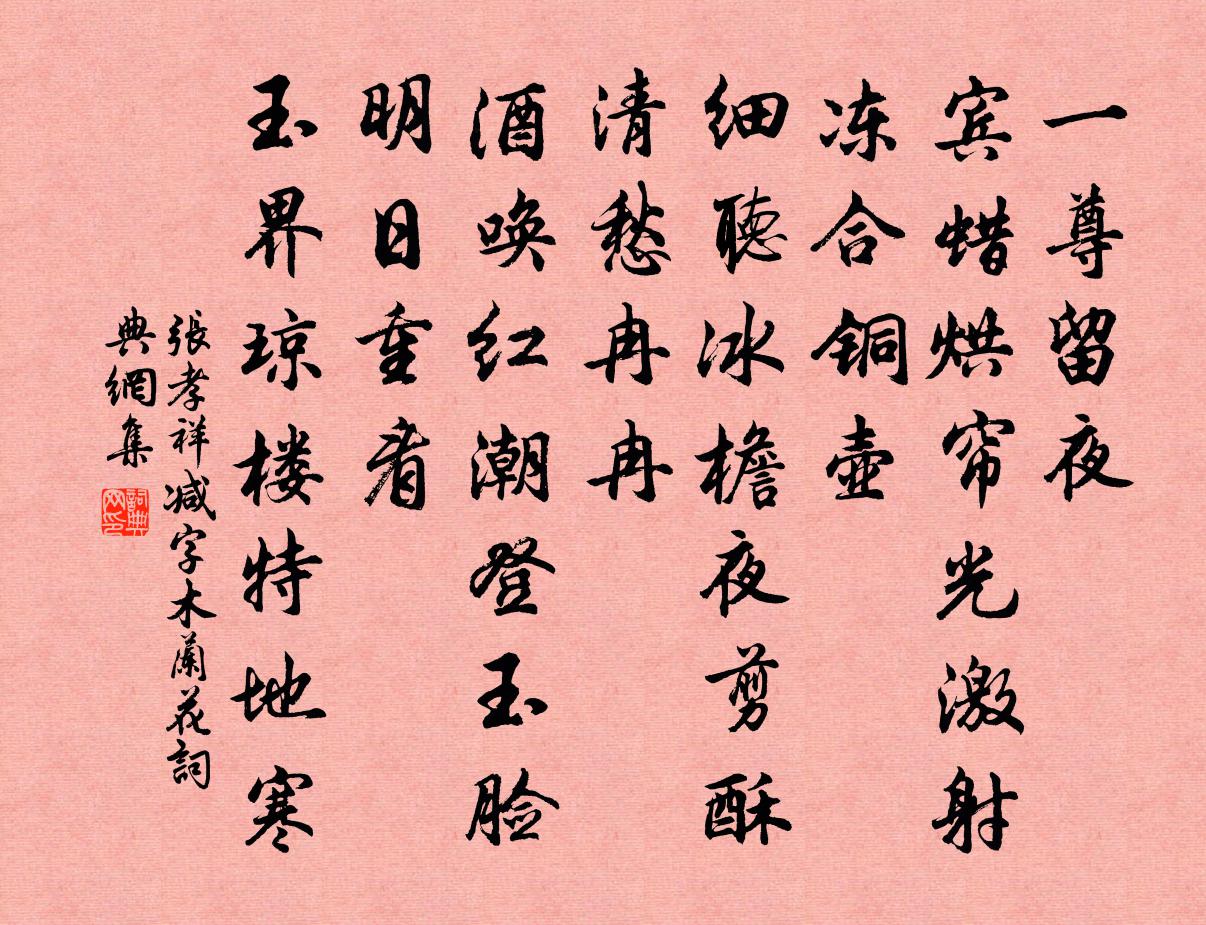 一尊留夜
宾蜡烘帘光激射
冻合铜壶
细聽冰檐夜剪酥
清愁冉冉
酒唤红潮登玉脸
明日重看
玉界琼楼特地寒
張孝祥减字木蘭花詞
典網集
詞典
网印